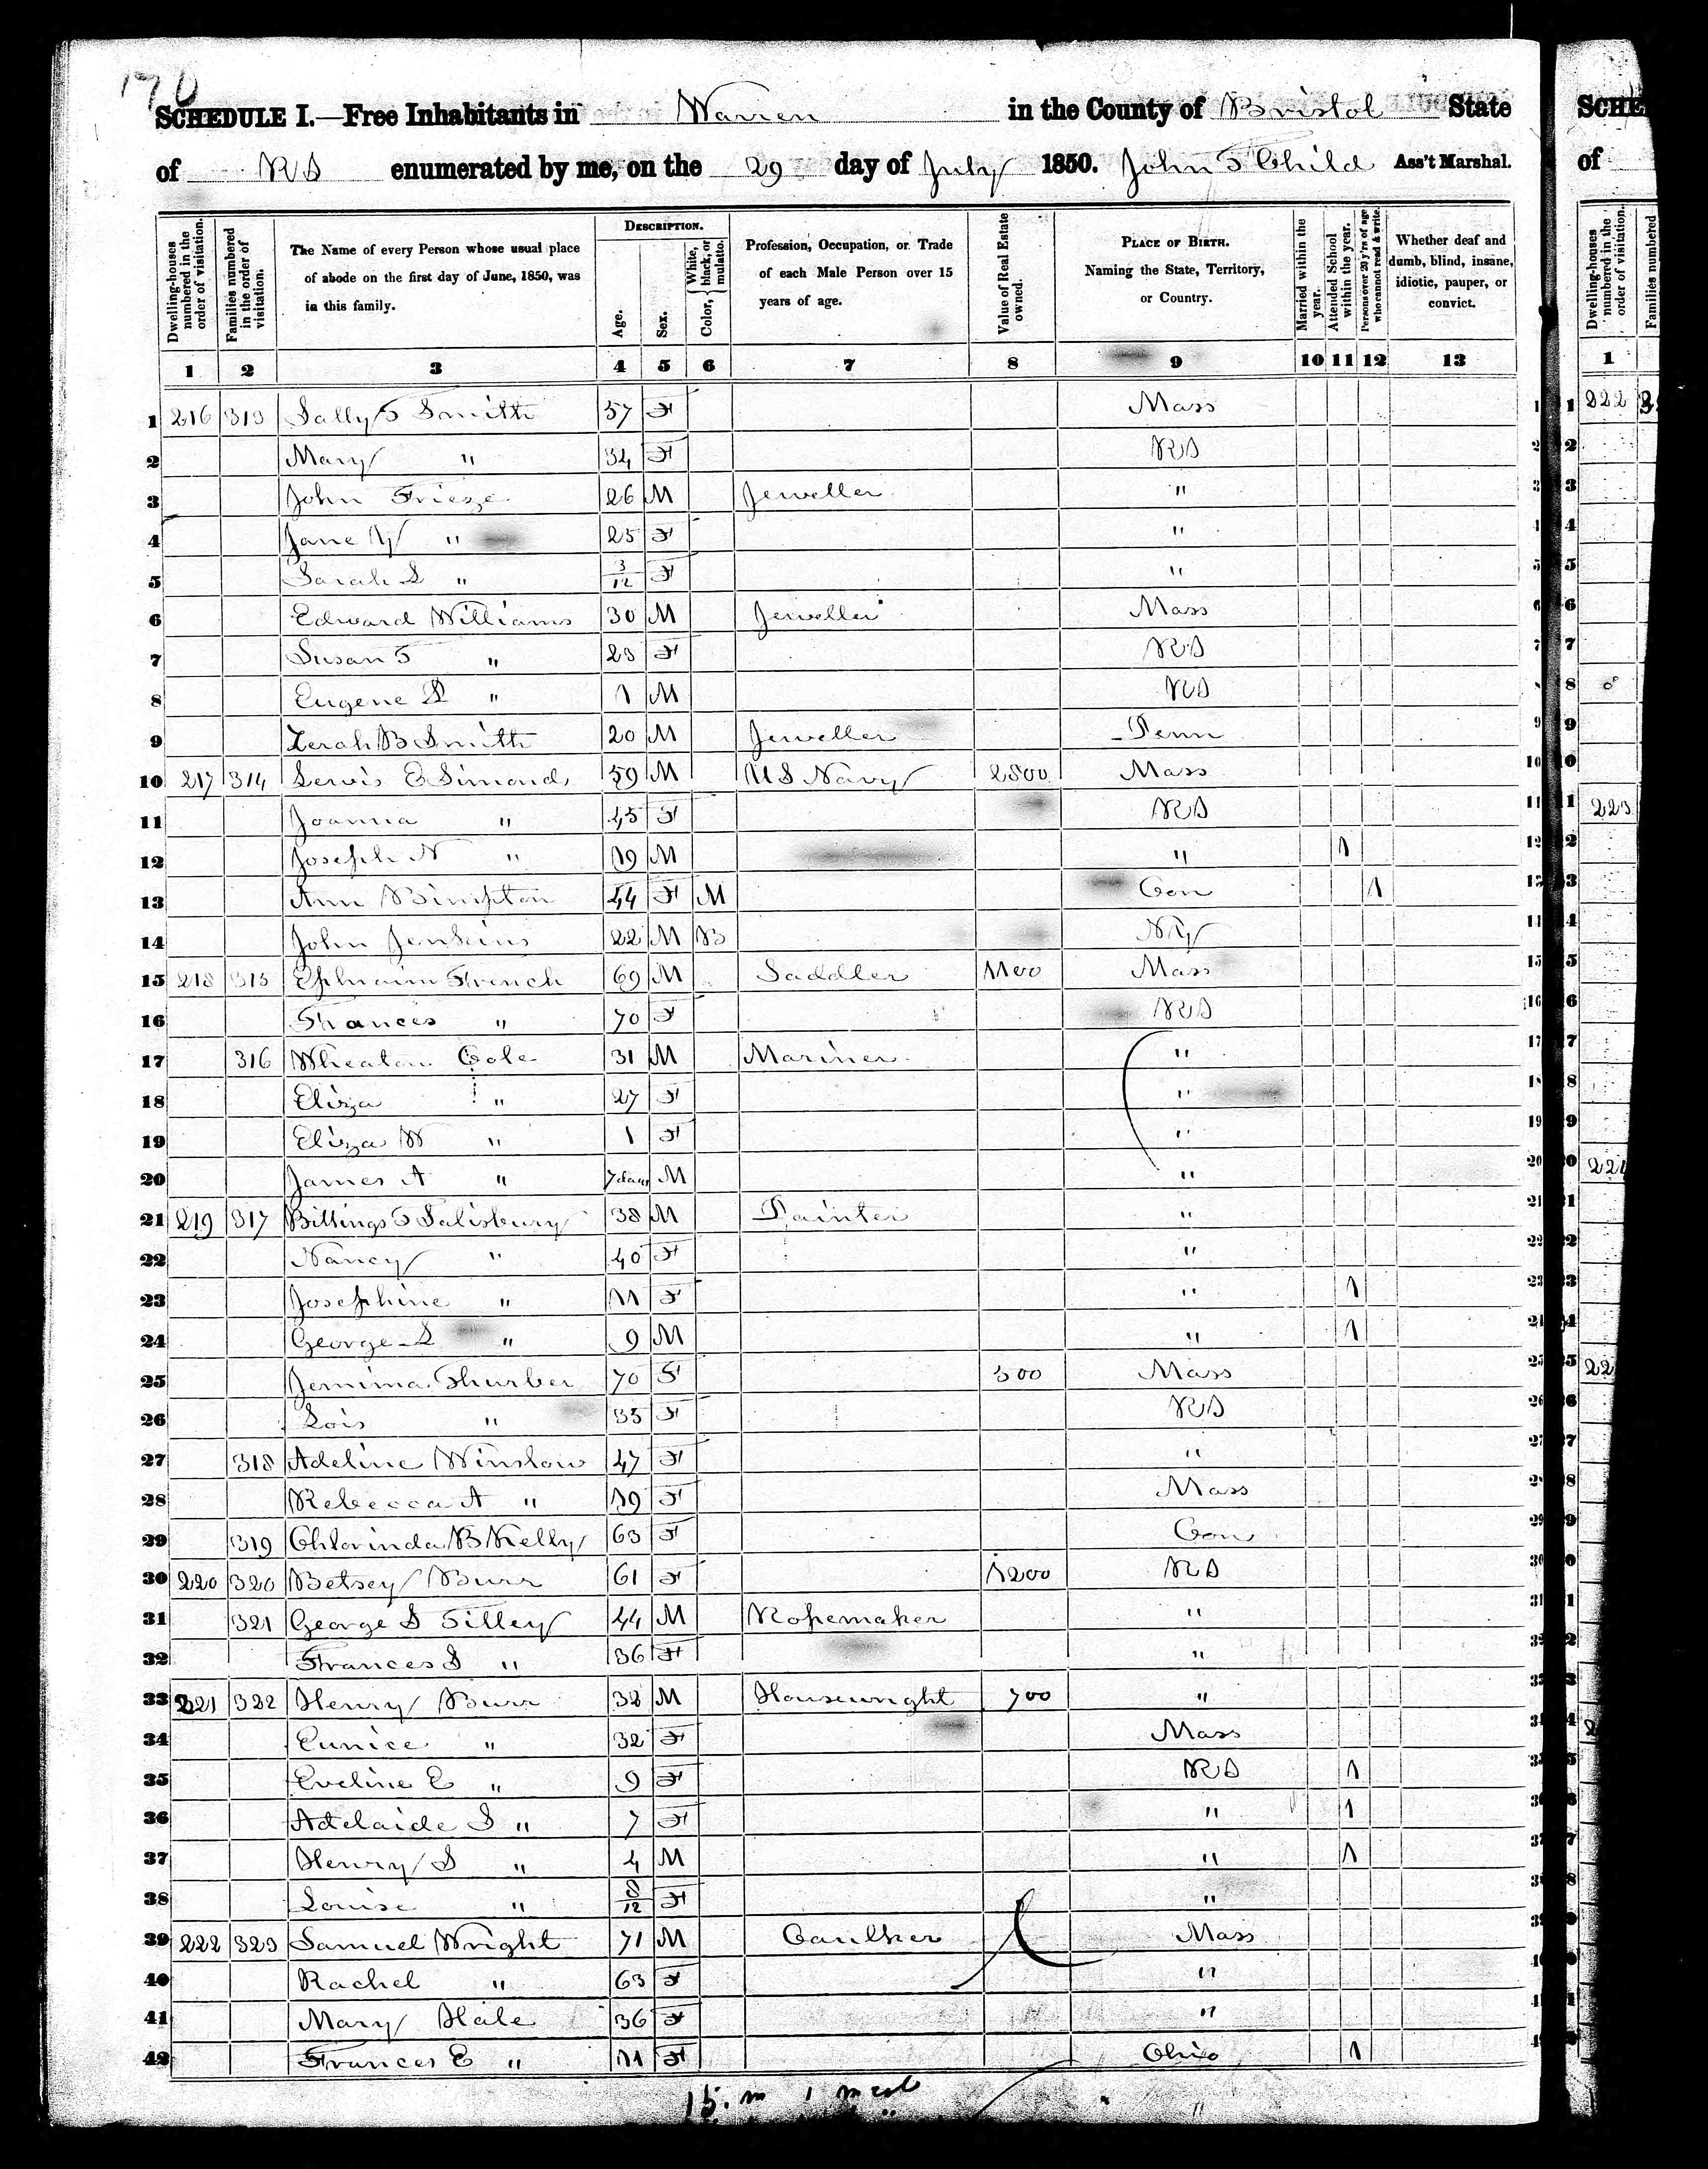 170
SCHEDULE I.—Free Inhabitants in Warren in the County of Bristol State
of RI enumerated by me, on the 29 day of July 1850. John T Child Ass't Marshal.
Dwelling-houses numbered in the order of visitation.
Families numbered in the order of visitation.
The Name of every Person whose usual place of abode on the first day of June, 1850, was in this family.
DESCRIPTION.
Age.
Sex.
Color, White, black, or mulatto.
Profession, Occupation, or Trade of each Male Person over 15 years of age.
Value of Real Estate owned.
PLACE OF BIRTH. Naming the State, Territory, or Country.
Married within the year.
Attended School within the year.
Persons over 20 y'rs of age who cannot read & write.
Whether deaf and dumb, blind, insane, idiotic, pauper, or convict.
1 2 3 4 5 6 7 8 9 10 11 12 13
1 216 313 Sally T Smith 57 F Mass
2 Mary " 34 F RI
3 John Frieze 26 M Jeweller "
4 Jane " 25 F "
5 Sarah S " 3/12 F "
6 Edward Williams 30 M Jeweller Mass
7 Susan T " 23 F RI
8 Eugene " 1 M RI
9 Zerah B Smith 20 M Jeweller Penn
10 217 314 Lewis E Simonds 59 M US Navy 2800 Mass
11 Joanna " 45 F RI
12 Joseph N " 19 M " 1
13 Ann Bimpton 44 F M Con 1
14 John Jenkins 22 M B NY
15 218 315 Ephraim French 69 M Saddler 1100 Mass
16 Frances " 70 F RI
17 316 Wheaton Cole 31 M Mariner "
18 Eliza " 27 F "
19 Eliza W " 1 F "
20 James A " 7 days M "
21 219 317 Billings T Salisbury 38 M Painter "
22 Nancy " 40 F "
23 Josephine " 11 F " 1
24 George L " 9 M " 1
25 Jemima Thurber 70 F 300 Mass
26 Lois " 35 F RI
27 318 Adeline Winslow 47 F "
28 Rebecca A " 19 F Mass
29 319 Chlorinda B Kelly 63 F Con
30 220 320 Betsey Burr 61 F 1200 RI
31 321 George S Tilley 44 M Ropemaker "
32 Frances S " 36 F "
33 221 322 Henry Burr 38 M Housewright 700 "
34 Eunice " 32 F Mass
35 Eveline E " 9 F RI 1
36 Adelaide S " 7 F " 1
37 Henry S " 4 M " 1
38 Louise " 8/12 F "
39 222 323 Samuel Wright 71 M Caulker Mass
40 Rachel " 63 F "
41 Mary Hale 36 F "
42 Frances E " 11 F Ohio 1
15 m 1
SCHE
of
Dwelling-houses numbered in the order of visitation.
Families numbered
1
222
223